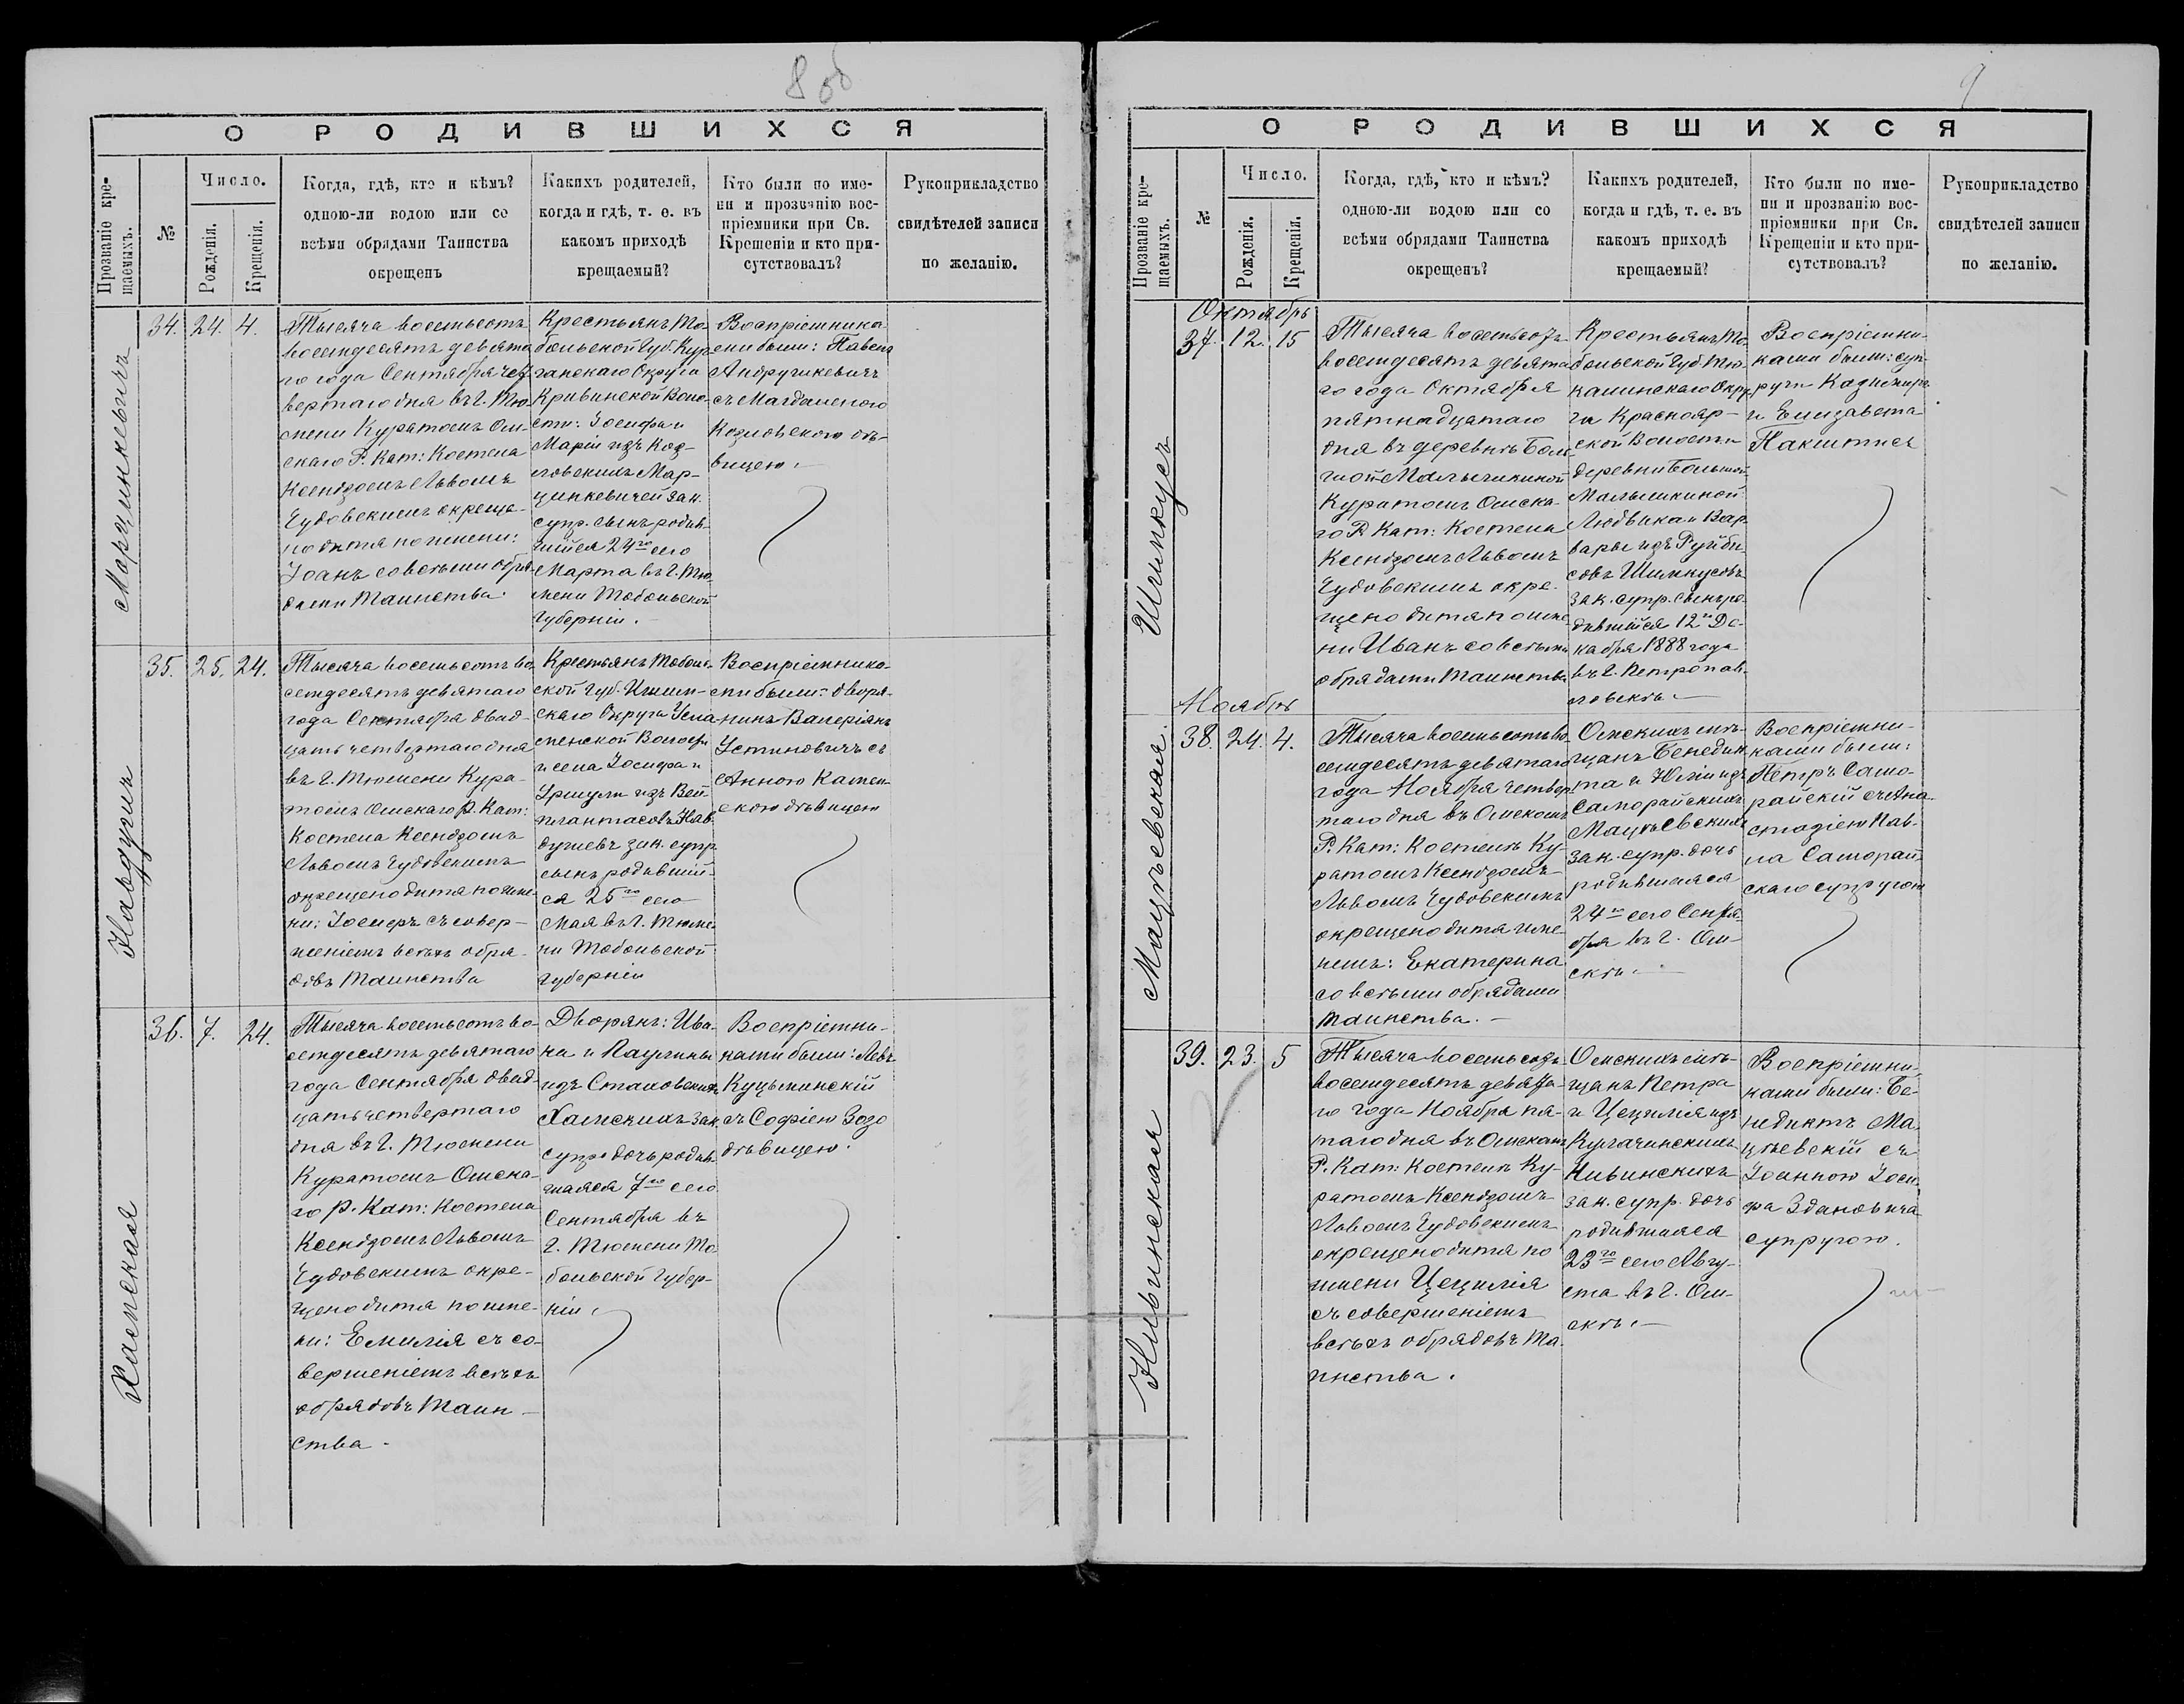 8 об
О РОДИВШИХСЯ
Прозваніе кре-
щаемыхъ.
№
Число.
Рожденія.
Крещенія.
Когда, гдѣ, кто и кѣмъ?
одною-ли водою или со
всѣми обрядами Таинства
окрещенъ
Какихъ родителей,
когда и гдѣ, т. е. въ
какомъ приходѣ
крещаемый?
Кто были по име-
ни и прозванію вос-
пріемники при Св.
Крещеніи и кто при-
сутствовалъ?
Рукоприкладство
свидѣтелей записи
по желанію.
Марцинкевичъ
34. 24. 4.
Тысяча восемьсотъ
восемдесятъ девята
го года Сентября чет
вертаго дня въ г. Тю-
мени Куратомъ Ом-
скаго Р. Кат: Костела
Ксендзомъ Львомъ
Чудовскимъ окреще-
но дитя по имени:
Іоанъ со всѣми обря-
дами Таинства.
Крестьянъ То-
больской Губ. Кур-
ганскаго Округа
Кривинской Воло-
сти: Іосифа и
Маріи изъ Коз-
ловскихъ Мар-
цинкевичей зак.
супр. сынъ родив-
шійся 24го сего
Марта въ г. Тю-
мени Тобольской
Губерніи.
Воспріемника-
ми были: Павелъ
Андрушкевичъ
съ Магдаленою
Козловскою дѣ-
вицею.
Навдушъ
35. 25. 24.
Тысяча восемьсотъ во-
семдесятъ девятаго
года Сентября двад-
цать четвертаго дня
въ г. Тюмени Кура-
томъ Омскаго Р. Кат:
Костела Ксендзомъ
Львомъ Чудовскимъ
окрещено дитя по име-
ни: Іосифъ съ совер-
шеніемъ всѣхъ обря-
довъ Таинства
Крестьянъ Тоболь-
ской Губ. Ишим-
скаго Округа Усла-
менской Волости
и села Іосифа и
Уршули изъ Вей-
плантасовъ Нав-
душевъ зак. супр.
сынъ родившій-
ся 25го сего
Мая въ г. Тюме-
ни Тобольской
губерніи
Воспріемнико-
ми были: дворя-
нинъ Валеріянъ
Устиновичъ съ
Анною Камен-
скою дѣвицею
Хамская
36. 7. 24.
Тысяча восемьсотъ во-
семдесятъ девятаго
года Сентября двад-
цать четвертаго
дня въ г. Тюмени
Куратомъ Омска-
го Р. Кат: Костела
Ксендзомъ Львомъ
Чудовскимъ окре-
щено дитя по име-
ни: Емилія съ со-
вершеніемъ всѣхъ
обрядовъ Таин-
ства.
Дворянъ: Ива-
на и Паулины
изъ Стаховскихъ
Хамскихъ зак.
супр. дочь родив-
шаяся 7го сего
Сентября въ
г. Тюмени То-
больской Губер-
ніи.
Воспріемни-
ками были: Левъ
Куцьминскій
съ Софіею Зозо
дѣвицею.
9
О РОДИВШИХСЯ
Прозваніе кре-
щаемыхъ.
№
Число.
Рожденія.
Крещенія.
Когда, гдѣ, кто и кѣмъ?
одною-ли водою или со
всѣми обрядами Таинства
окрещенъ?
Какихъ родителей,
когда и гдѣ, т. е. въ
какомъ приходѣ
крещаемый?
Кто были по име-
ни и прозванію вос-
пріемники при Св.
Крещеніи и кто при-
сутствовалъ?
Рукоприкладство
свидѣтелей записи
по желанію.
Октябрь
Шимкусъ
37. 12. 15
Тысяча восемьсотъ
восемдесятъ девята
го года Октября
пятнадцатаго
дня въ деревнѣ Боль
шой-Малышкиной
Куратомъ Омска-
го Р. Кат: Костела
Ксендзомъ Львомъ
Чудовскимъ окре-
щено дитя по име-
ни Иванъ со всѣми
обрядами Таинства
Крестьянъ То
больской Губ Тю-
калинскаго Окру
га Краснояр-
ской Волости
деревни Большой
Малышкиной
Людвика и Вар-
вары изъ Руйби-
совъ Шимкусовъ
зак. супр. сынъ ро-
дившійся 12го Де-
кабря 1888 года
въ г. Петропав-
ловскѣ.
Воспріемни-
ками были: суп-
руги Казимиръ
и Елизавета
Пакштисъ
Ноябрь
Мацѣевская
38. 24. 4.
Тысяча восемьсотъ во-
семдесятъ девятаго
года Ноября четвер-
таго дня въ Омскомъ
Р. Кат: Костелѣ Ку-
ратомъ Ксендзомъ
Львомъ Чудовскимъ
окрещено дитя име-
немъ: Екатерина
со всѣми обрядами
таинства.
Омскихъ мѣ-
щанъ Бенедик-
та и Юліи изъ
Саморайскихъ
Мацѣевскихъ
зак. супр. дочь
родившаяся
24го сего Сентя-
бря въ г. Ом-
скѣ.
Воспріемни-
ками были:
Петръ Само-
райскій съ Ана-
стазіею Пав-
ла Саморай-
скаго супругою
Нивинская
39. 23. 5
Тысяча восемьсотъ
восемдесятъ девята-
го года Ноября пя-
таго дня въ Омскомъ
Р. Кат: Костелѣ Ку-
ратомъ Ксендзомъ
Львомъ Чудовскимъ
окрещено дитя по
имени Цецилія
съ совершеніемъ
всѣхъ обрядовъ Та-
инства.
Омскихъ мѣ-
щанъ Петра
и Цецилія изъ
Кулачинскихъ
Нивинскихъ
зак. супр. дочь
родившаяся
23го сего Авгу-
ста въ г. Ом-
скѣ.
Воспріемни-
ками были: Бе-
недиктъ Ма-
цѣевскій съ
Іоанною Іоси-
фа Здановича
супругою.